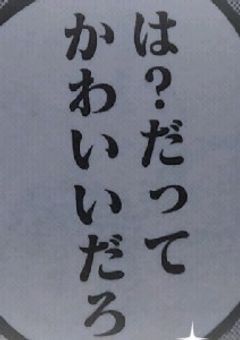 は？だって
かわいいだろ